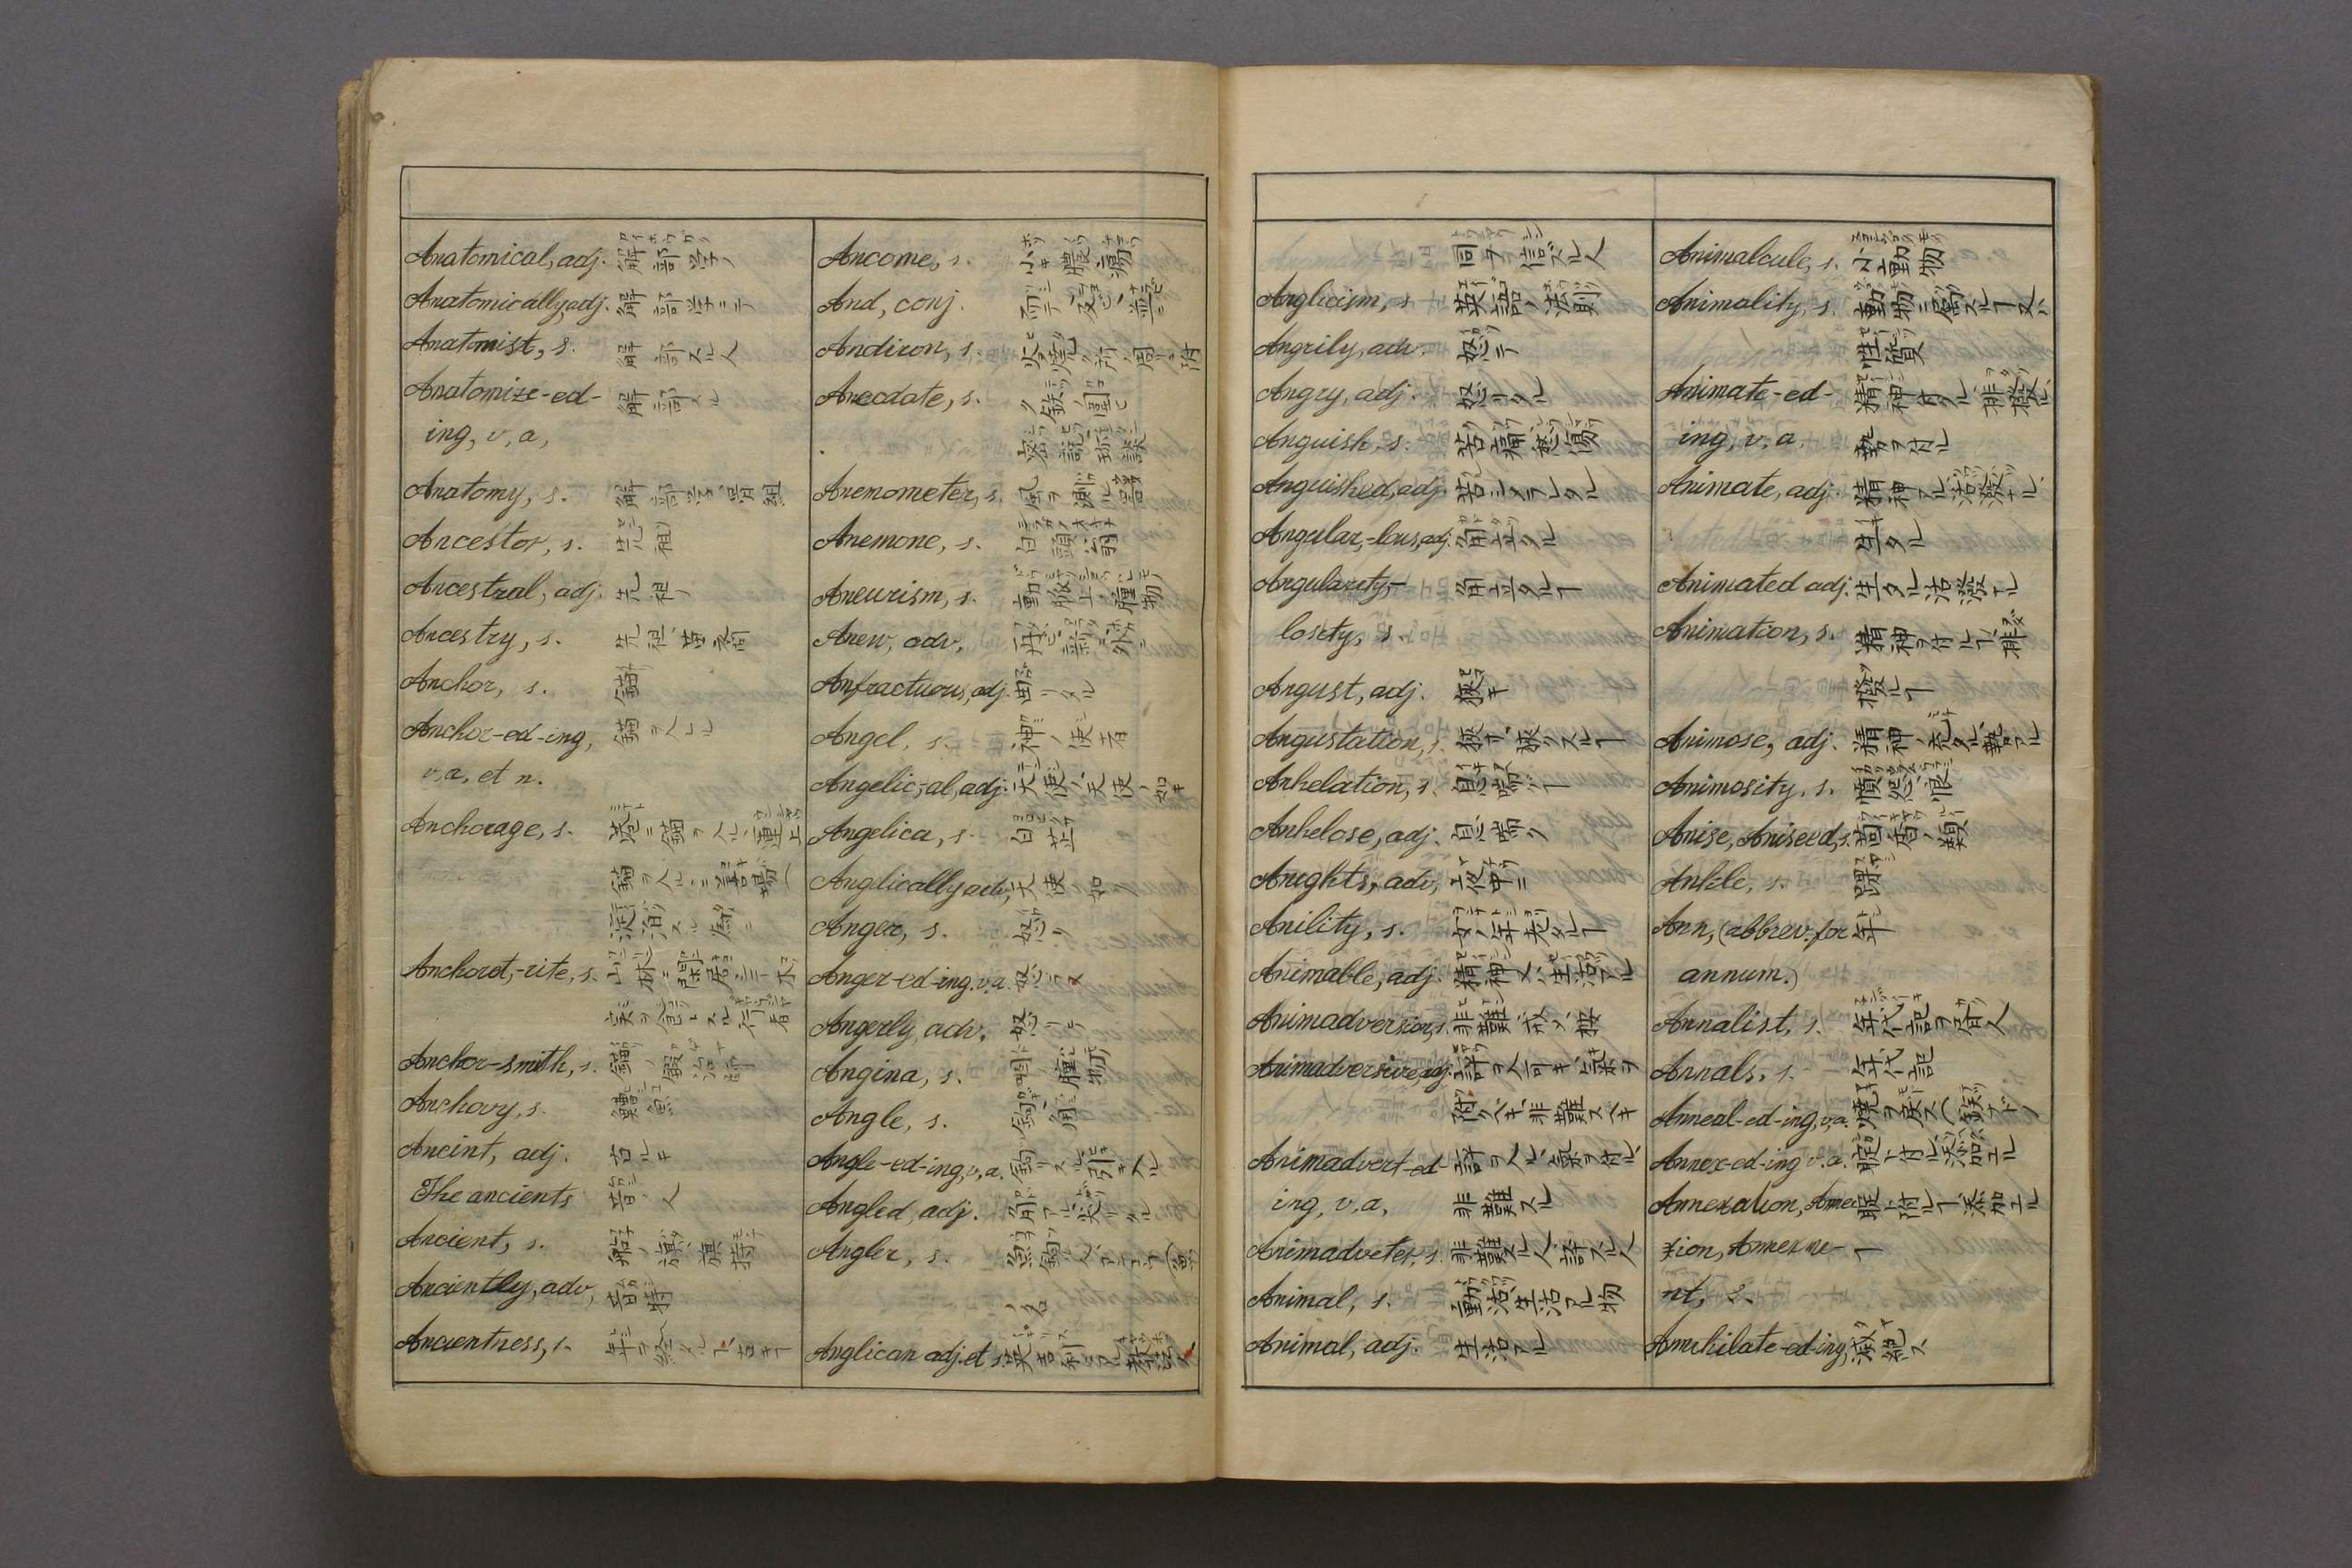 Anatomical, adj. 解部学ノ
Anatomically, adj. 解部学ニテ
Anatomist, s. 解部スル人
Anatomize-ed- 解部スル
ing, v, a,
Anatomy, s. 解部学、骨組
Ancestor, s. 先祖
Ancestral, adj. 先祖ノ
Ancestry, s. 先祖、苗裔
Anchor, s. 錨
Anchor-ed-ing, 錨ヲ入ル
v, a, et n.
Anchorage, s. 港ニ錨ヲ入ル、運上
錨ヲ入ルニ善キ場(
Anchoret,-rite, s. 山林ニ閑居シテ木
実ヲ食トスル行者
Anchor-smith, s. 錨ノ鍛冶
Anchovy, s.
Ancint, adj. 古ルキ
The ancients 昔ノ人
Ancient, s. 船ノ旗、旗持
Anciently, adv, 昔時
Ancientness, s. 年ヲ経タルコ、古キコ
Ancome, s. 小キ腫瘍
And, conj. 而テ、及ビ、並ニ
Andiron, s. 火ヲ焼ク所ノ周リニ附
Anecdate, s. ク鉄ノ囲ヒ
Anemometer, s. 風ヲ測ル器
Anemone, s. 白頭翁
Aneurism, s. 動脈上ノ腫物
Anew, adv, 再ビ、新ニ
Anfractuous, adj. 曲リタル
Angel, s. 神ノ使者
Angelic,-al, adj. 天使ノ、天使ノ如キ
Angelica, s. 白芷
Anglically adv, 天使ノ如ク
Anger, s. 怒リ
Anger-ed-ing. v.a. 怒ラス
Angerly, adv. 怒リテ
Angina, s. 咽ノ腫物
Angle, s. 鈎、角
Angle-ed-ing, v, a. 釣リスル、引キスル
Angled, adj. 角アル、尖リタル
Angler, s. 魚釣リ人、(魚
ノ名
Anglican adj. et s. 英吉利ノ
同ヲ信ズル人
Anglicism, s 英語ノ法則
Angrily, adv. 怒テ
Angry, adj. 怒リタル
Anguish, s. 苦痛、愁傷
Anguished, adj. 苦シメラレタル
Angular,-lous, adj. 角立タル
Angularity,- 角立タルコ
losity, s.
Angust, adj. 狭キ
Angustation, s. 狭サ、狭クスルコ
Anhelation, s. 息喘コ
Anhelose, adj. 息喘ク
Anights, adv, 夜中ニ
Anility, s. 女ノ年老タルコ
Animable, adj. 精神又ハ生活アル
Animadversion, s. 非難
Animadversive, adj. 評ヲ入可キ、気ヲ
附クベキ、非難スベキ
Animadvert-ed- 評ヲ入ル、気ヲ付ル
ing, v, a, 非難スル
Animadveter, s. 非難スル人、評スル人
Animal, s. 動活、生活アル物
Animal, adj. 生活アル
Animalcule, s. 小動物
Animality, s. 動物ニ属スルコ又ハ
性質
Animate-ed- 精神付クル
ing, v, a, 勢ヲ付ル
Animate, adj. 精神アル、活溌ナル、
生タル
Animated adj. 生タル、活溌ナル
Animation, s. 精神ヲ付ルコ
Animose, adj. 精神ノ充タル、勢アル
Animosity, s. 憤怨、恨
Anise, Aniseed, s. 茴香ノ類
Ankle, s. 踝
Ann, (abbrev. for 年
annum.)
Annalist, s. 年代記ヲ書ク人
Annals, s. 年代記
Anneal-ed-ing, v, a. 焼ヲ戻ス
Annex-ed-ing v. a. 付ル、添加エル
Annexation, Annec- 附ルコ、添加エル
xion, Annexme- コ
nt, s.
Annihilate-ed-ing, 滅絶ス